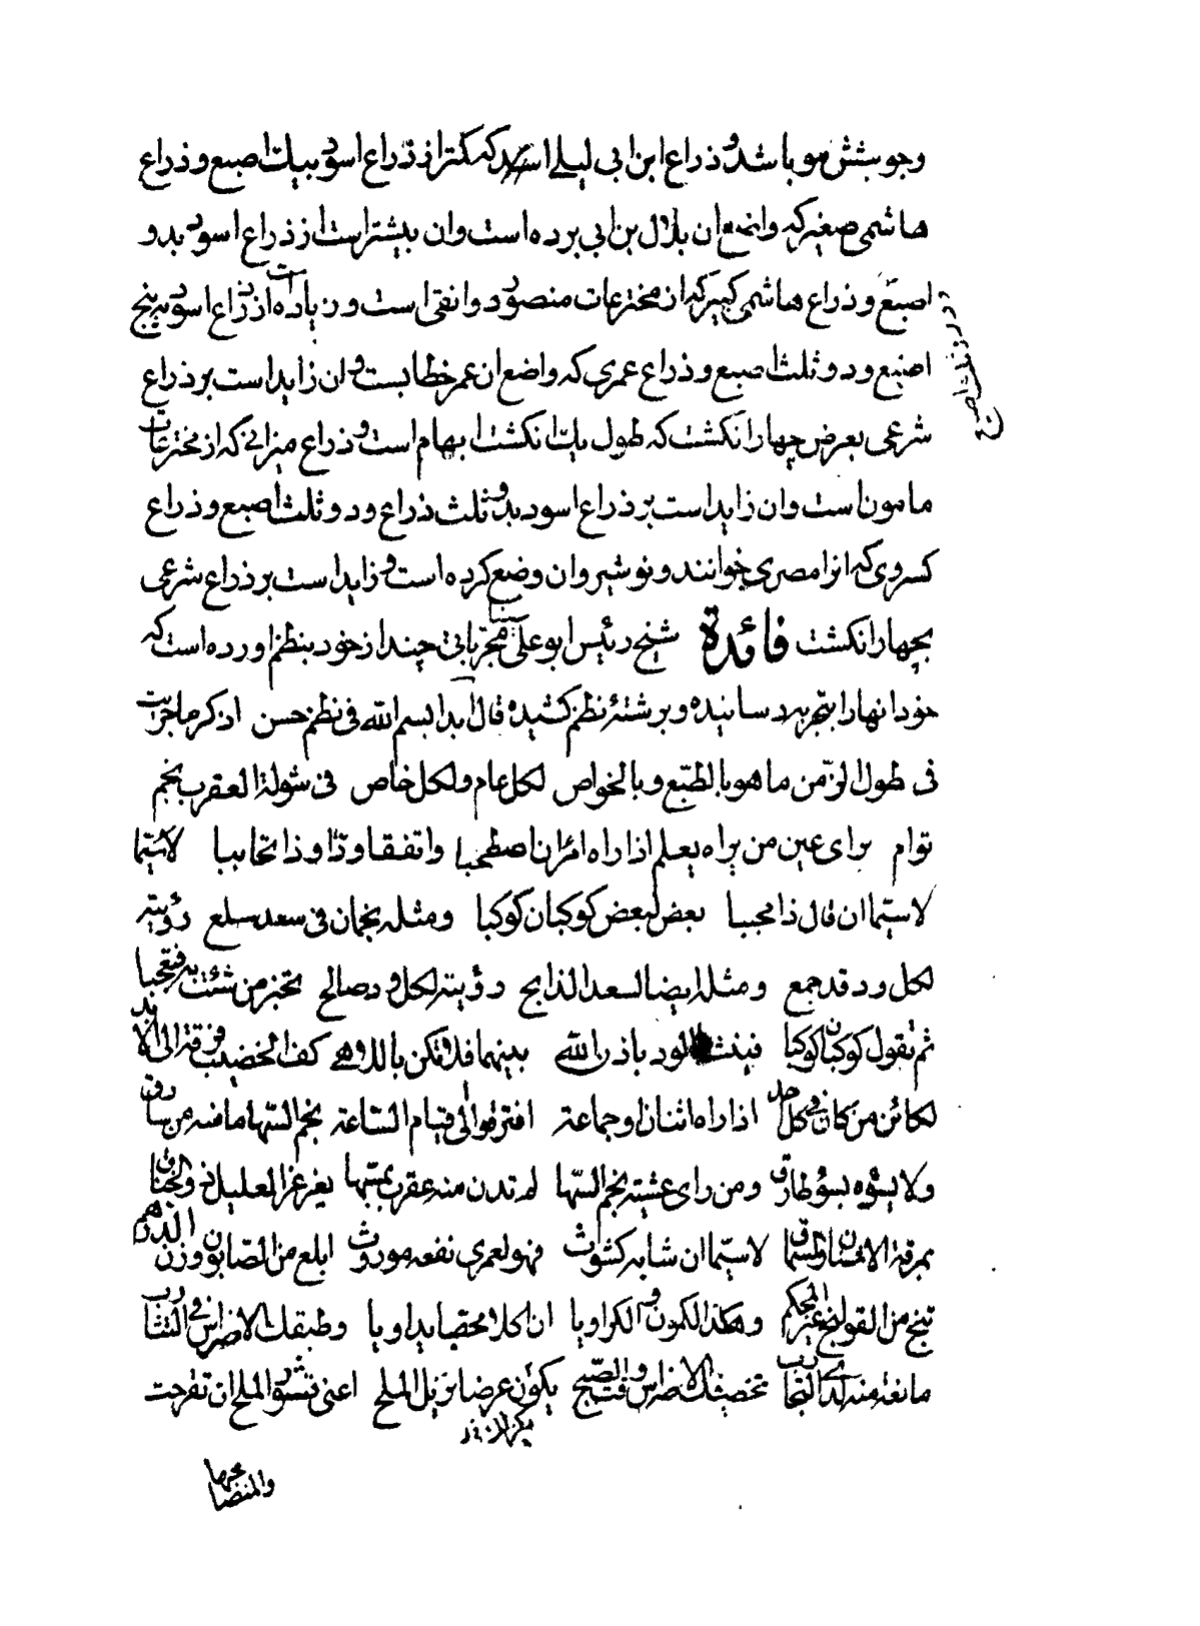 وجو بشش مو باشد و ذراع ابن ابی لیلی است که کمتر از ذراع اسود بیک اصبع و ذراع
هاشمی صغیر که واضع ان بلال بن ابی برده است وان بیشتر است از ذراع اسود بدو
اصبع و ذراع هاشمی کبیر که از مخترعات منصور دوانقی است و زیاده از ذراع اسود به پنج
اصبع و دو ثلث اصبع و ذراع عمری که واضع ان عمر خطابست و ان زاید است بر ذراع
شرعی بعرض چهار انکشت که طول یک انکشت ابهام است و ذراع میزانی که از مخترعات
مامون است وان زاید است بر ذراع اسود بدو ثلث ذراع و دو ثلث اصبع و ذراع
کسروی که انرا مصری خوانند و نوشیروان وضع کرده است و زاید است بر ذراع شرعی
بچهار انکشت فائدة شیخ رئیس ابو علی سینا مجرباتی چند از خود بنظم اورده است که
خود انها را بتجربه رسانیده و برشتهٔ نظم کشیده قال ابدا بسم الله فی نظم حسن اذکر ما جربت
فی طول الزمن ما هو بالطبع و بالخواص لکل عام ولکل خاص فی شولة العقرب نجم
توام یراه عین من یراه یعلم اذا راه امران اصطحبا واتفقا ودا وذا تحاببا لاسیما
لاسیما ان قال ذا محبا بعض لبعض کوکبان کوکبا ومثله نجمان فی سعد بلع رؤیته
لکل ود قد جمع ومثله ایضا السعد الذابح رؤیته لکل ود صالح تختبر من شئت به فتعجبا
ثم تقول کوکبان کوکبا فینشا الود باذن الله بینهما فلا تکن باللاهی کف الخضیب فرقة الی الابد
لکائن من کان فی کل احد اذا راه اثنان او جماعة افترقوا الی قیام الساعة نجم السها مامنه من سارق
ولا یسؤه بسؤ طارق ومن رای عشیة نجم السها لم تدن منه عقرب یمسها یغرغر العلیل ذو الخناق
بمرقة الاشنان والسماق لاسیما ان شابه کشوث فهو لعمری نفعه موروث ابلع من الصابون وزن الدرهم
تنج من القولنج غیر المحکم وهکذا الکمون و الکراویا ان اکلا محصبا یداویا وطبقک الاضراس فی التثاؤب
مانعة منه لدی التجارب تخصیفک الاضراس وقت الصبح یکون عرضا بزیل الملح اعنی نشور الملح ان تفرجت